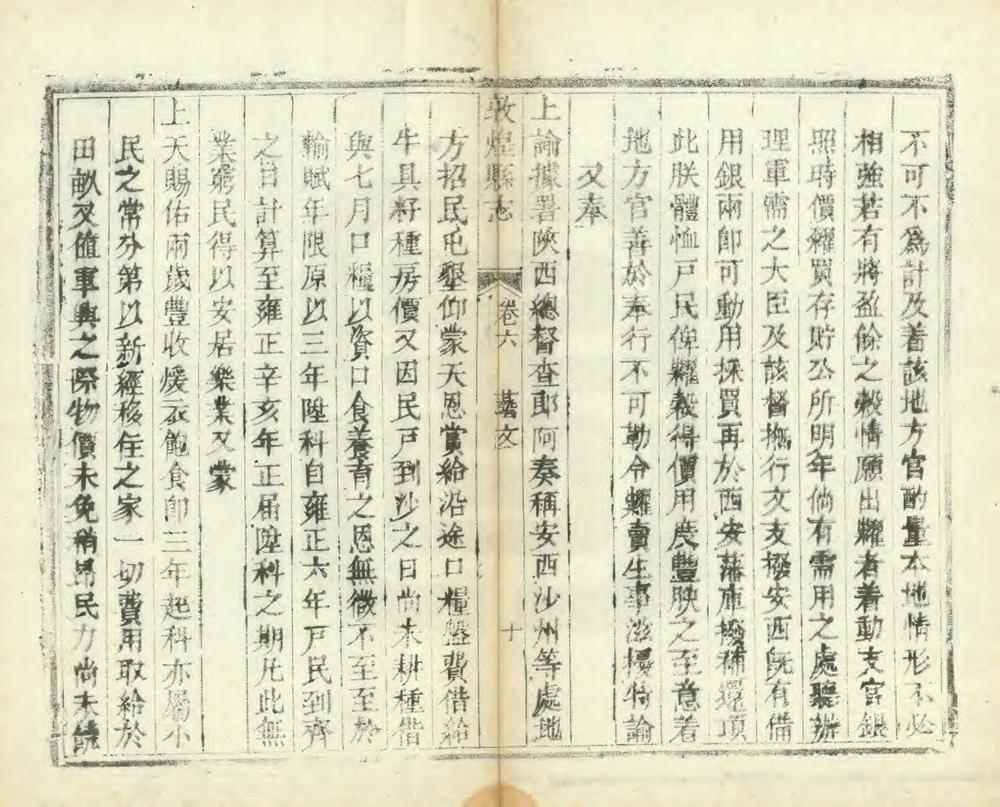 不可不爲計及着該地方官酌量本地情形不必
相強若有將盈餘之穀情願出糶者着動支官銀
照時價糴買存貯公所明年倘有需用之處聽辦
理軍需之大臣及該督撫行文支撥安西旣有備
用銀兩卽可動用採買再於西安藩庫撥補還項
此朕體恤戸民俾糶穀得價用度豐腴之至意着
地方官善於奉行不可勒令糶賣生事滋擾特諭
又奉
上諭據署陝西總督查郎阿奏稱安西沙州等處地
敦煌縣志 卷六 藝文 十
方招民屯墾仰蒙天恩賞給沿途口糧盤費借給
牛具籽種房價又因民戸到沙之日尚未耕種借
與七月口糧以資口食養育之恩無微不至至於
輸賦年限原以三年陞科自雍正六年戸民到齊
之日計算至雍正辛亥年正届陞科之期凡此無
業窮民得以安居樂業又蒙
上天賜佑兩歲豐收煖衣飽食卽三年起科亦屬小
民之常分第以新經移住之家一切費用取給於
田畝又值軍興之際物價未免稍昂民力尚未饒